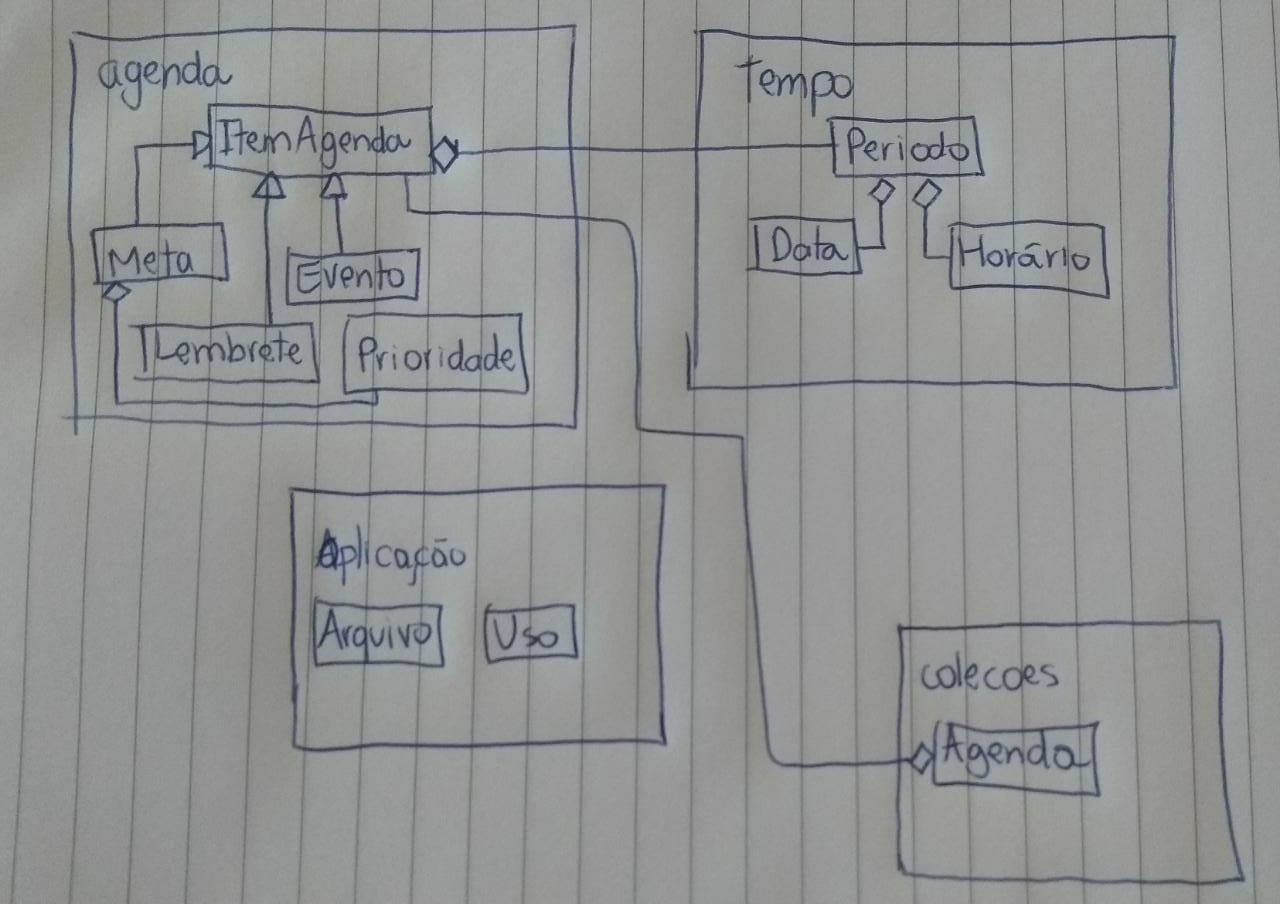 agenda
ItemAgenda
Meta
Evento
Lembrete
Prioridade
Tempo
Periodo
Data
Horário
Aplicação
Arquivo
Uso
colecoes
Agenda